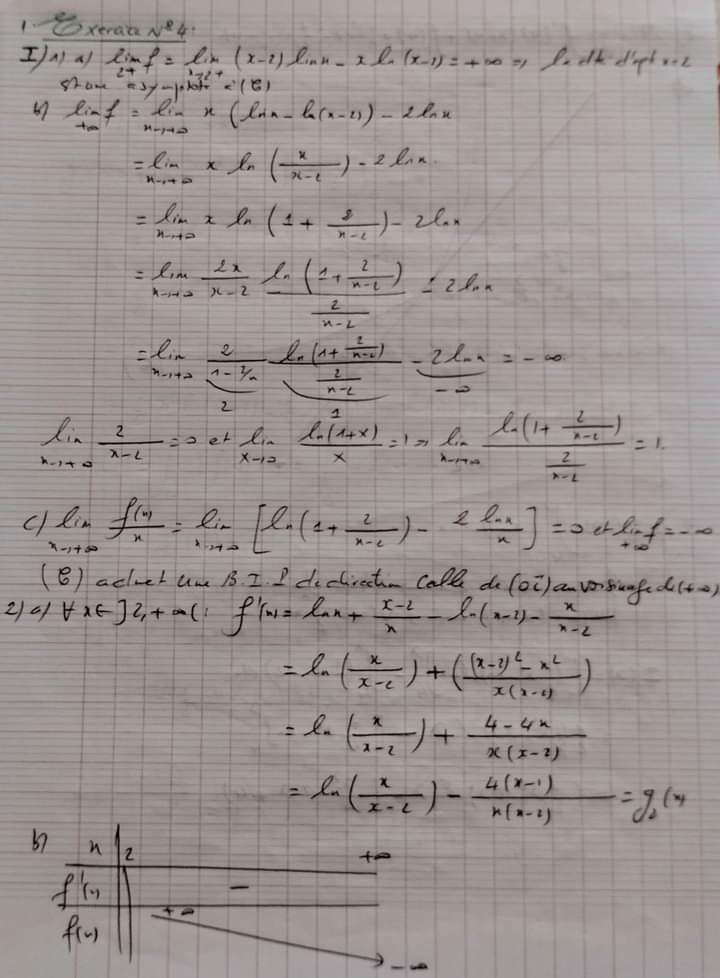 Exercice N°4:
I) 1) a) lim f = lim (x-2) ln x - x ln (x-2) = +∞ => la dte d'eqt x=2
2+ x→2+
à (C)
b) lim f = lim x (ln x - ln(x-2)) - 2 ln x
+∞ x→+∞
= lim x→+∞ x ln (x/(x-2)) - 2 ln x.
= lim x→+∞ x ln (1 + 2/(x-2)) - 2 ln x
= lim x→+∞ 2x/(x-2) ln (1 + 2/(x-2)) / (2/(x-2)) - 2 ln x
= lim x→+∞ 2/(1-2/x) ln (1 + 2/(x-2)) / (2/(x-2)) - 2 ln x = -∞
2 1 -∞
lim x→+∞ 2/(x-2) = 0 et lim x→0 ln(1+x)/x = 1 => lim x→+∞ ln(1 + 2/(x-2)) / (2/(x-2)) = 1.
c) lim x→+∞ f(x)/x = lim x→+∞ [ln(1 + 2/(x-2)) - 2 ln x/x] = 0 et lim +∞ f = -∞
(C) admet une B.I.P de direction celle de (Oi) au voisinage de (+∞)
2) a) ∀ x ∈ ]2, +∞(: f'(x) = ln x + (x-2)/x - ln(x-2) - x/(x-2)
= ln (x/(x-2)) + (((x-2)² - x²)/(x(x-2)))
= ln (x/(x-2)) + (4-4x)/(x(x-2))
= ln (x/(x-2)) - 4(x-1)/(x(x-2)) = g
b) x 2 +∞
f'(x) -
f(x) +∞ -∞